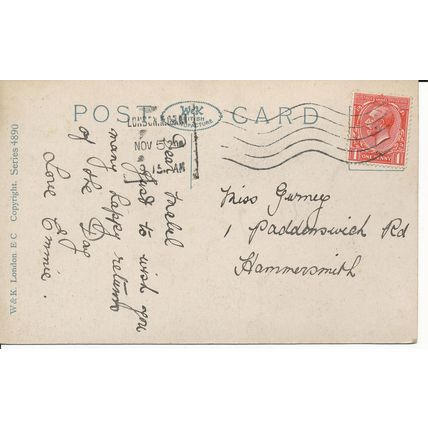 POST CARD
W&K
BRITISH
MANUFACTURE
LONDON
NOV 5
15 AM
ONE PENNY
Dear Mabel
Just to wish you
many happy returns
of the Day
Love Emmie.
Miss Gurney
1 Paddenswich Rd
Hammersmith
W&K. London. E C Copyright. Series 4890